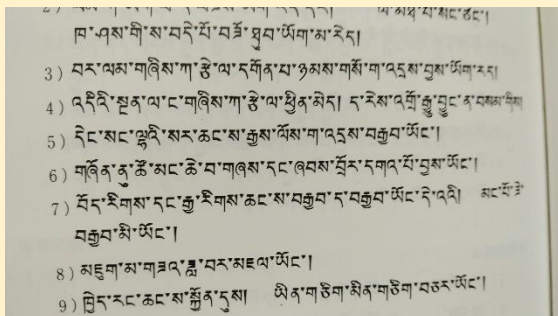 ཁ་ཤས་གིས་བདེ་པོ་བཟོ་ཐུབ་ཡོག་མ་རེད།
3) བར་ལམ་གཞིས་ཀ་རྩེ་ལ་དགོན་པ་ཉམས་གསོ་ག་འདྲས་བྱས་ཡོག་རེད།
4) འདིའི་སྔན་ལ་ང་གཞིས་ཀ་རྩེ་ལ་ཕྱིན་མེད། ད་རེས་འགྲོ་རྒྱུ་བྱུང་ན་བསམ་གིས།
5) དེང་སང་ལྷའི་སར་ཆང་ས་རྒྱས་ལོས་ག་འདྲས་བརྒྱབ་ཡོང་།
6) གཞོན་ནུ་ཚོ་མང་ཆེ་བ་གཞས་དང་ཞབས་བྲོར་དགའ་པོ་བྱས་ཡོང་།
7) བོད་རིགས་དང་རྒྱ་རིགས་ཆང་ས་བརྒྱབ་ད་བརྒྱབ་ཡོང་དེ་འའི། མང་པོ་ཅེ་
བརྒྱབ་མི་ཡོང་།
8) མཇུག་མ་གཟའ་ཟླ་བར་མཇལ་ཡོང་།
9) ཁྱེད་རང་ཆང་ས་སྐྱོན་དུས། ཡིན་གཅིག་མིན་གཅིག་བཅར་ཡོང་།